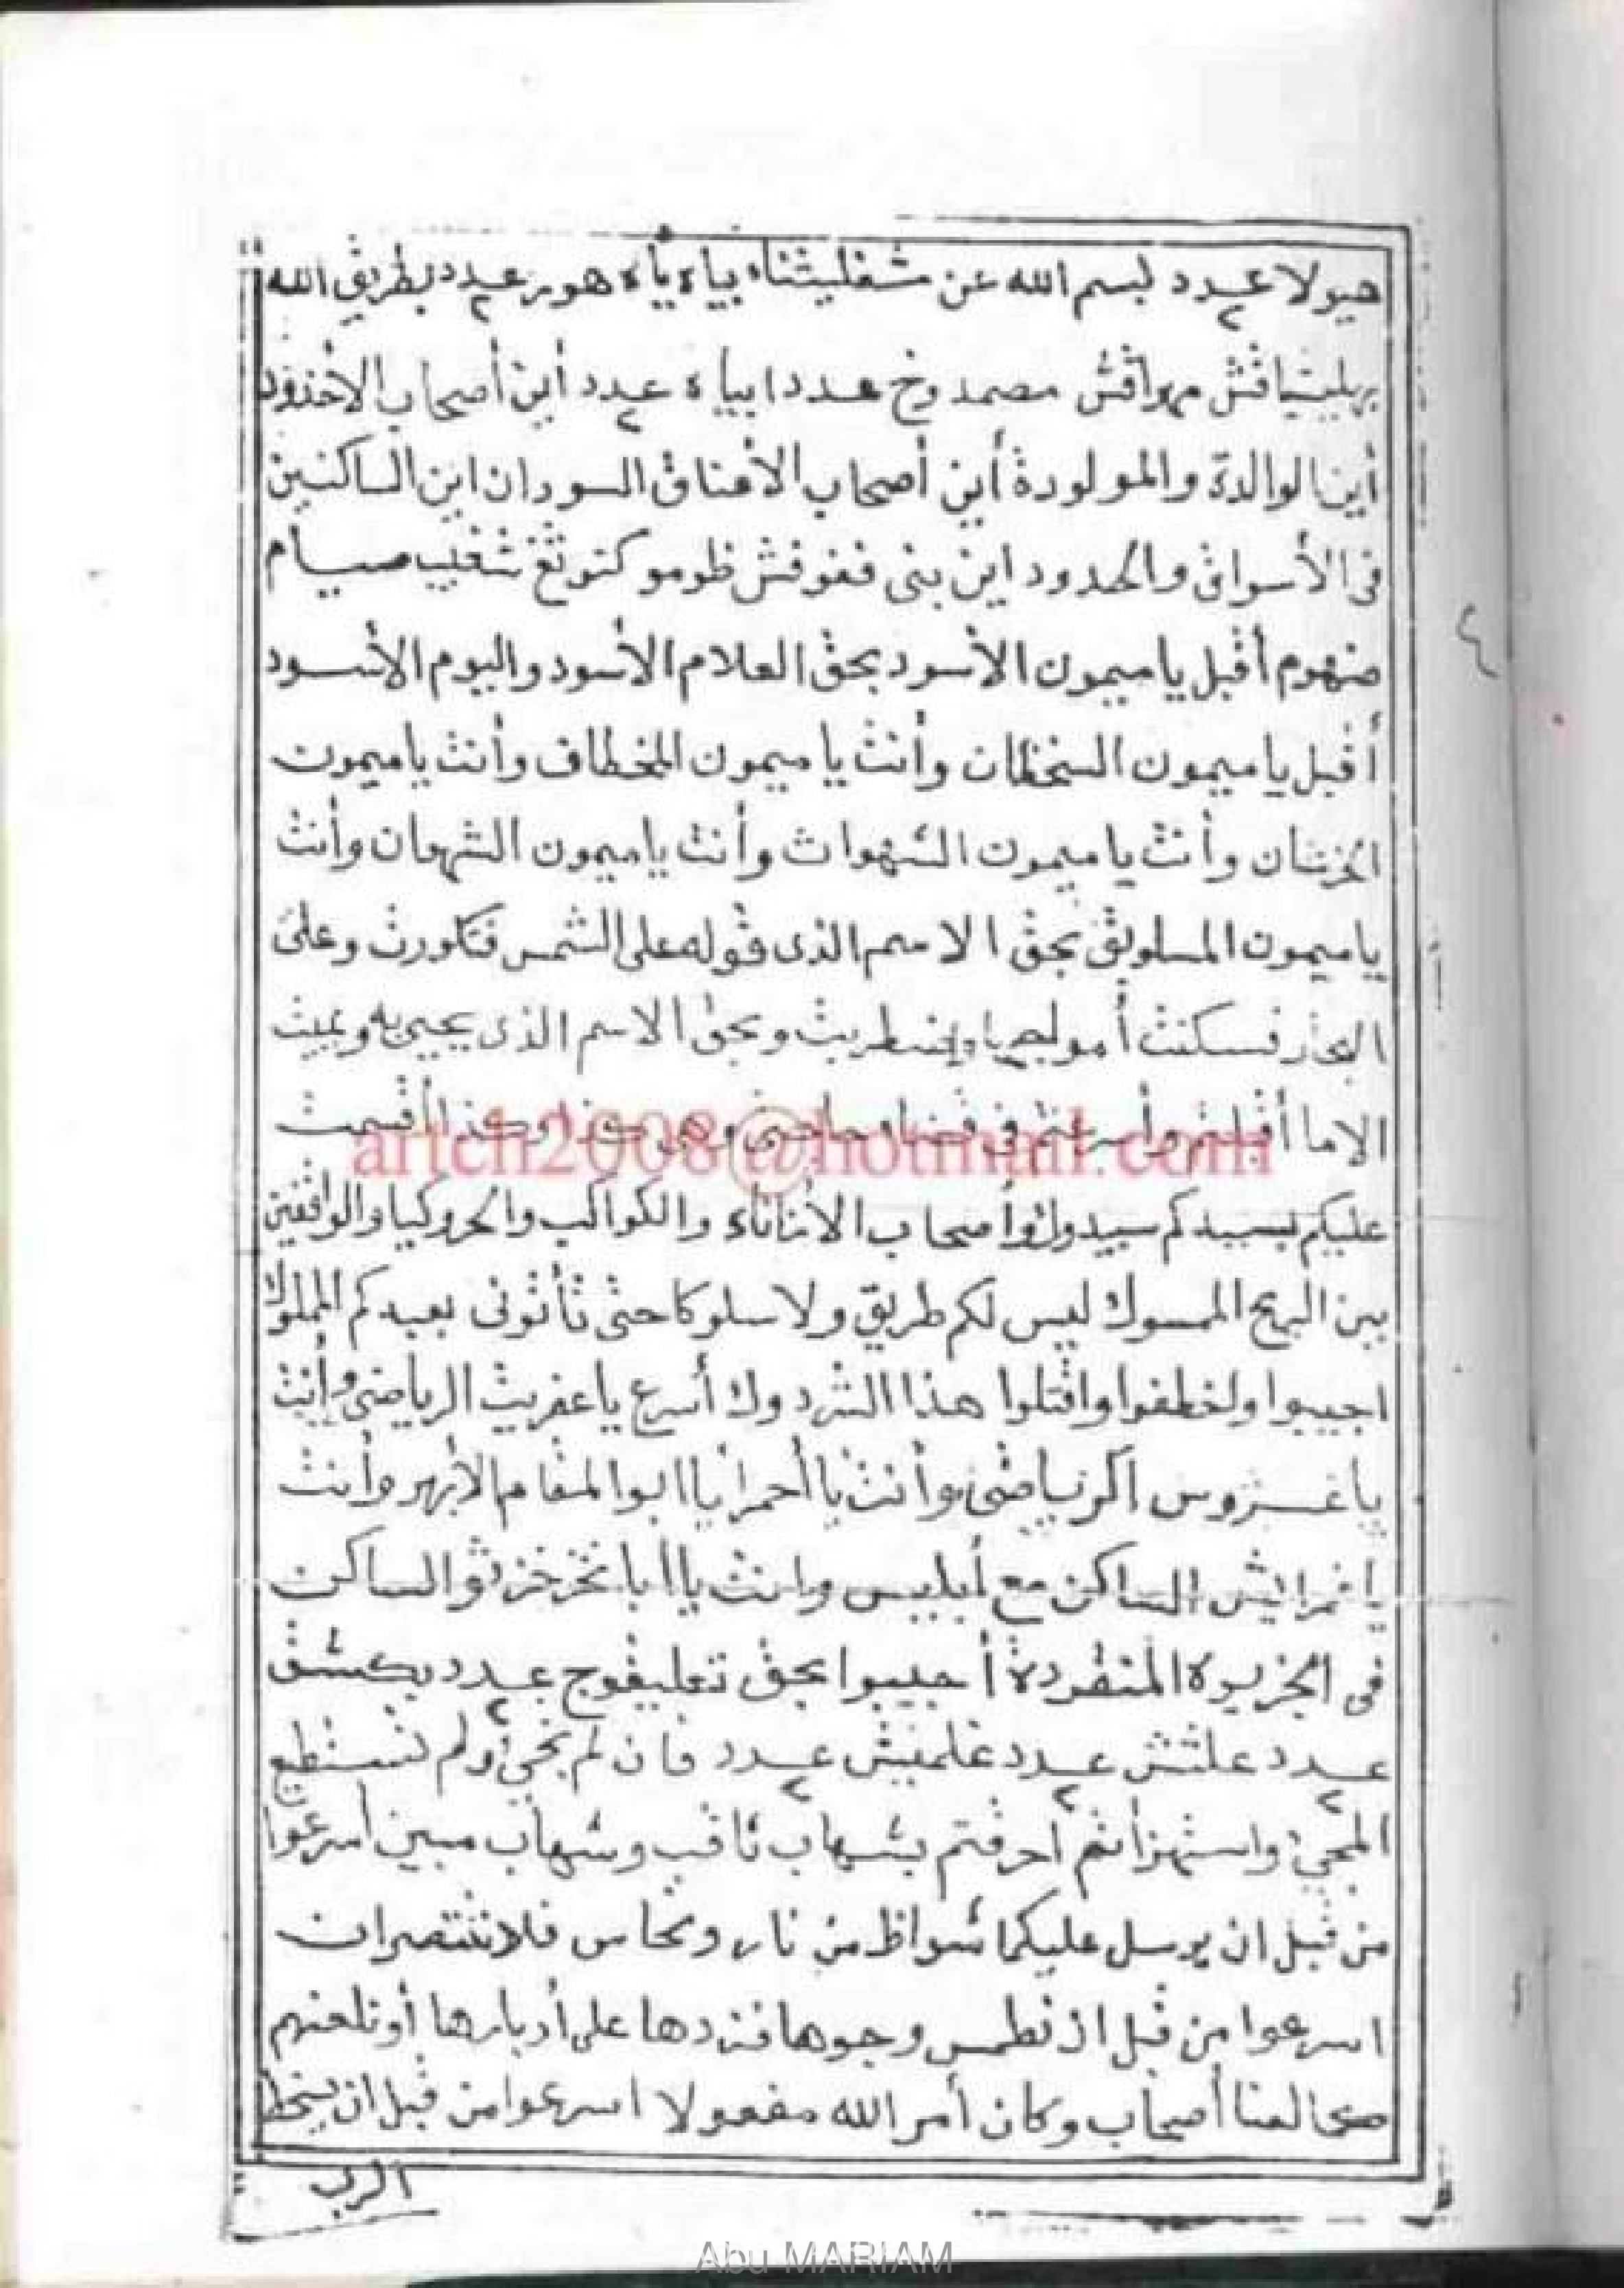 هيولا عدد ٢ بسم الله عن شغليثناه بياه ياه هور عدد ٢ بطريق الله
مهراقش مصمدوخ هددا بياه عدد ٢ أين أصحاب الأخدود
أين الوالدة والمولودة أين أصحاب الأعناق السودان اين الساكنين
فى الأسواق والحدود اين بنى
منهوم أقبل يا ميمون الأسود بحق العلام الأسود واليوم الأسود
أقبل يا ميمون السخطان وأنت يا ميمون الخطاف وأنت يا ميمون
وأنت يا ميمون الشهوات وأنت يا ميمون الشهوان وأنت
يا ميمون بحق الاسم الذى قوله على الشمس فتكورت وعلى
البحار فسكنت وبحق الاسم الذى يحيى به ويميت
الاما أقبلتم وأسرعتم فى قضاء حاجتى وهى كذا وكذا أقسمت
عليكم بسيدكم سيدوك وأصحاب الأناناء والكواكب والواقفين
بين البرج الممسوك ليس لكم طريق ولا سلوكا حتى تأتونى بعبدكم المملوك
اجيبوا واخطفوا واقتلوا هذا الشردوك أسرع يا عفريت الرياضى وأنت
وأنت يا أحمر يا ابوا المقام الأبهر وأنت
الساكن مع أبليس وانت يا أبا الساكن
فى الجزيرة المنفردة أجيبوا بحق تعليفوج عدد ٢ بكشف
عدد ٢ علشش عدد ٢ علميش عدد ٢ فان لم تجئ ولم تستطيع
المجئ واستهزأتم احرقتم بشهاب ثاقب وشهاب مبين اسرعوا
من قبل ان يرسل عليكما شواظ من نار ونحاس فلا تنتصران
اسرعوا من قبل ان نطمس وجوها فنردها على أدبارها أو نلعنهم
كما لعنا أصحاب وكان أمر الله مفعولا اسرعوا من قبل ان يسخط
الرب
٤
artch2008@hotmail.com
Abu MARIAM